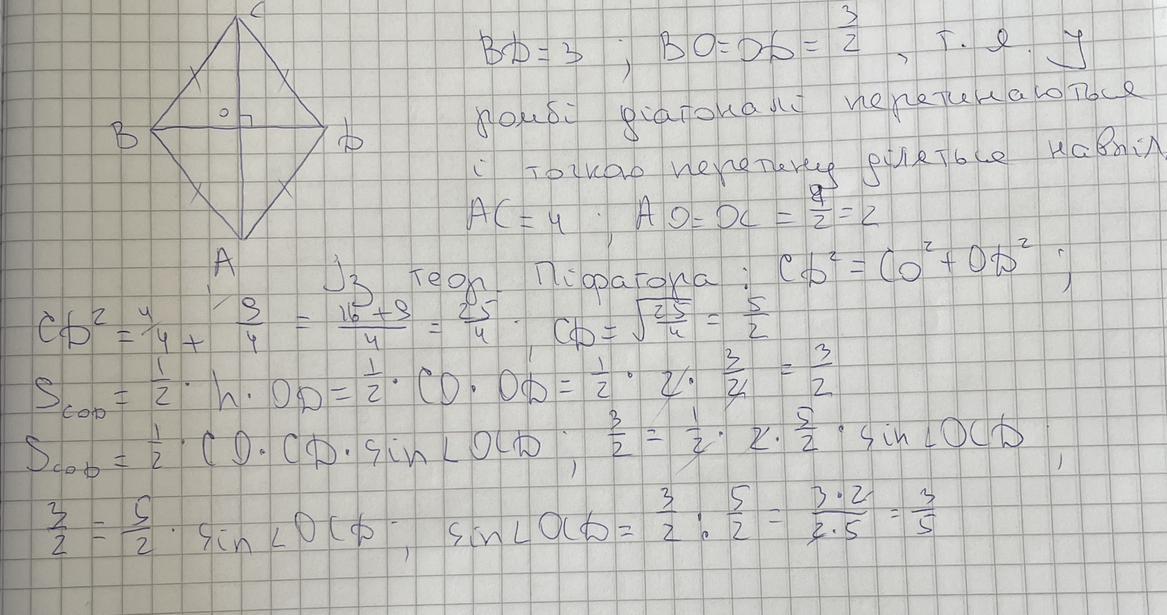 C
BD = 3 ; BO = OD = 3/2 , т. я. у
ромбі діагоналі перетинаються
B O D
і точкою перетину діляться навпіл
AC = 4 ; AO = OC = 4/2 = 2
A
Із теор. Піфагора : CD² = CO² + OD² ;
CD² = 4/4 + 9/4 = 16+9/4 = 25/4 ; CD = √25/4 = 5/2
S_COD = 1/2 · h · OD = 1/2 · CO · OD = 1/2 · 2 · 3/2 = 3/2
S_COD = 1/2 · CO · CD · sin∠OCD ; 3/2 = 1/2 · 2 · 5/2 · sin∠OCD ;
3/2 = 5/2 · sin∠OCD ; sin∠OCD = 3/2 : 5/2 = 3·2/2·5 = 3/5